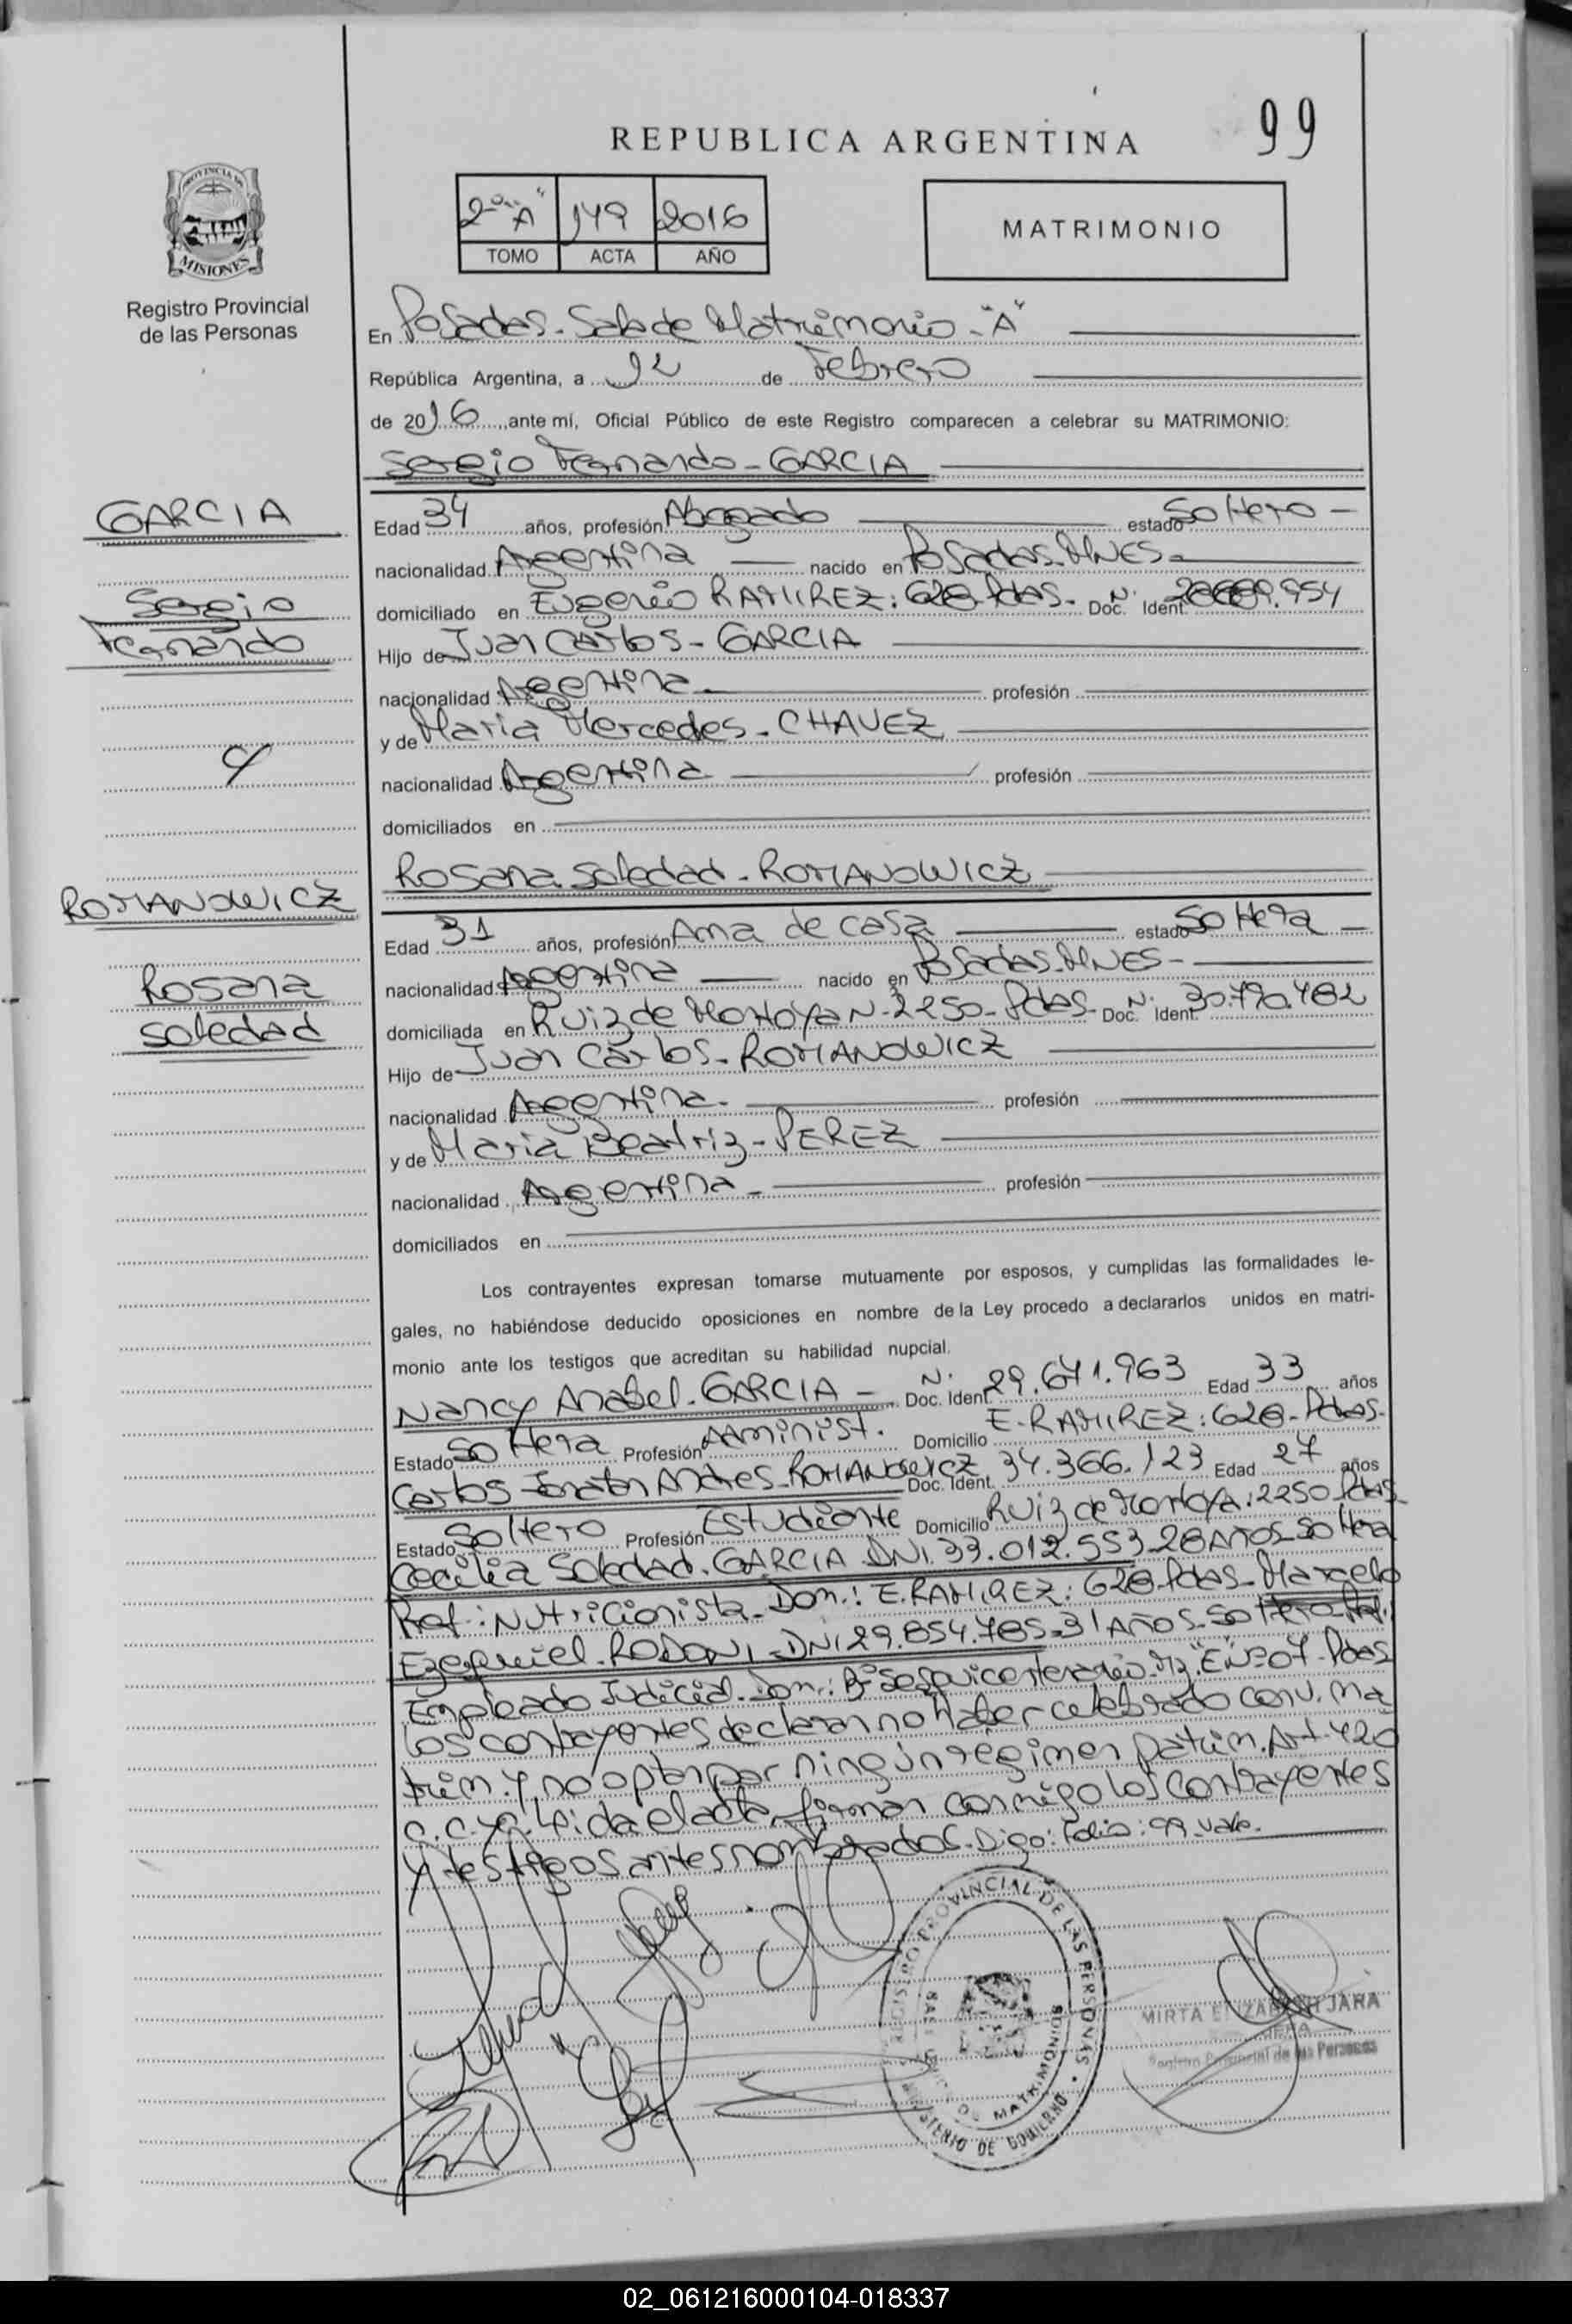 99
REPUBLICA ARGENTINA
PROVINCIA DE
MISIONES
Registro Provincial
de las Personas
2º "A" 149 2016
TOMO ACTA AÑO
MATRIMONIO
En Posadas - Sala de Matrimonio - "A"
República Argentina, a 12 de Febrero
de 2016, ante mí, Oficial Público de este Registro comparecen a celebrar su MATRIMONIO:
Sergio Fernando - GARCIA
GARCIA
Sergio
Fernando
Edad 34 años, profesión Abogado estado Soltero -
nacionalidad Argentina nacido en Posadas - MNES -
domiciliado en Eugenio RAMIREZ: 628 - Pdas - Doc. N. Ident. .954
Hijo de Juan Carlos - GARCIA
nacionalidad Argentina - profesión
y de Maria Mercedes - CHAVEZ
y
nacionalidad Argentina profesión
domiciliados en
Rosana Soledad - ROMANOWICZ
ROMANOWICZ
Rosana
Soledad
Edad 31 años, profesión Ama de casa estado Soltera -
nacionalidad Argentina nacido en Posadas - MNES -
domiciliada en Ruiz de Montoya N - 2250 - Pdas - Doc. N. Ident. 30.790.482
Hijo de Juan Carlos - ROMANOWICZ
nacionalidad Argentina - profesión
y de Maria Beatriz - PEREZ
nacionalidad Argentina - profesión
domiciliados en
Los contrayentes expresan tomarse mutuamente por esposos, y cumplidas las formalidades le-
gales, no habiéndose deducido oposiciones en nombre de la Ley procedo a declararlos unidos en matri-
monio ante los testigos que acreditan su habilidad nupcial.
Nancy Anabel - GARCIA - Doc. N. Ident. 29.641.963 Edad 33 años
Estado Soltera Profesión Administ. Domicilio E. RAMIREZ: 628 - Pdas -
Carlos Jonatan Andres - ROMANOWICZ Doc. Ident. 34.366.123 Edad 27 años
Estado Soltero Profesión Estudiante Domicilio Ruiz de Montoya: 2250 Pdas -
Cecilia Soledad - GARCIA DNI. 33.012.553 - 28 Años - Soltera
Prof: Nutricionista - Dom.: E. RAMIREZ: 628 - Pdas - Marcelo
Ezequiel - RODONI - DNI 29.854.785 - 31 Años - Soltero -
Empleado Judicial - Dom.: Bº Sesquicentenario - Mz. "E" Nº 07 - Pdas
Los contrayentes declaran no haber celebrado conv. ma
trim. y no optan por ningún régimen patrim. Art. 420
c.c. Leida el acta, firman conmigo los contrayentes
y testigos antes nombrados - Digo: Folio: 99 - Vale.
REGISTRO PROVINCIAL DE LAS PERSONAS
MATRIMONIOS
MINISTERIO DE GOBIERNO
MIRTA ELIZABETH JARA
JEFA
Registro Provincial de las Personas
02_061216000104-018337